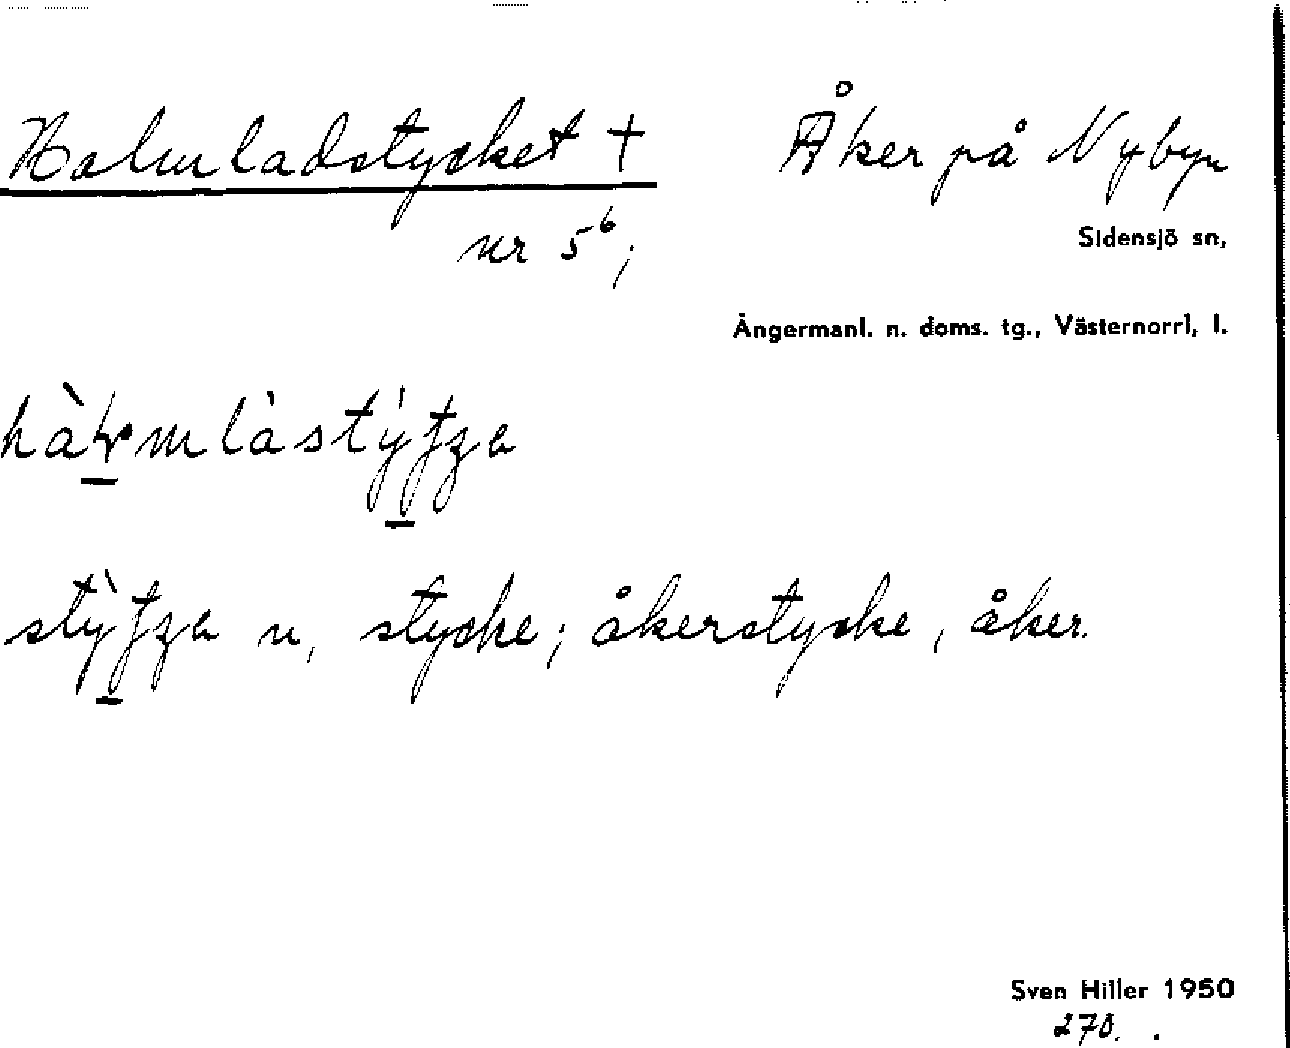 Halmladstycket + Åker på Nybyn
nr 5⁶;
Sidensjö sn,
Ångermanl. n. doms. tg., Västernorrl, l.
stycke; åkerstycke, åker.
Sven Hiller 1950
270.